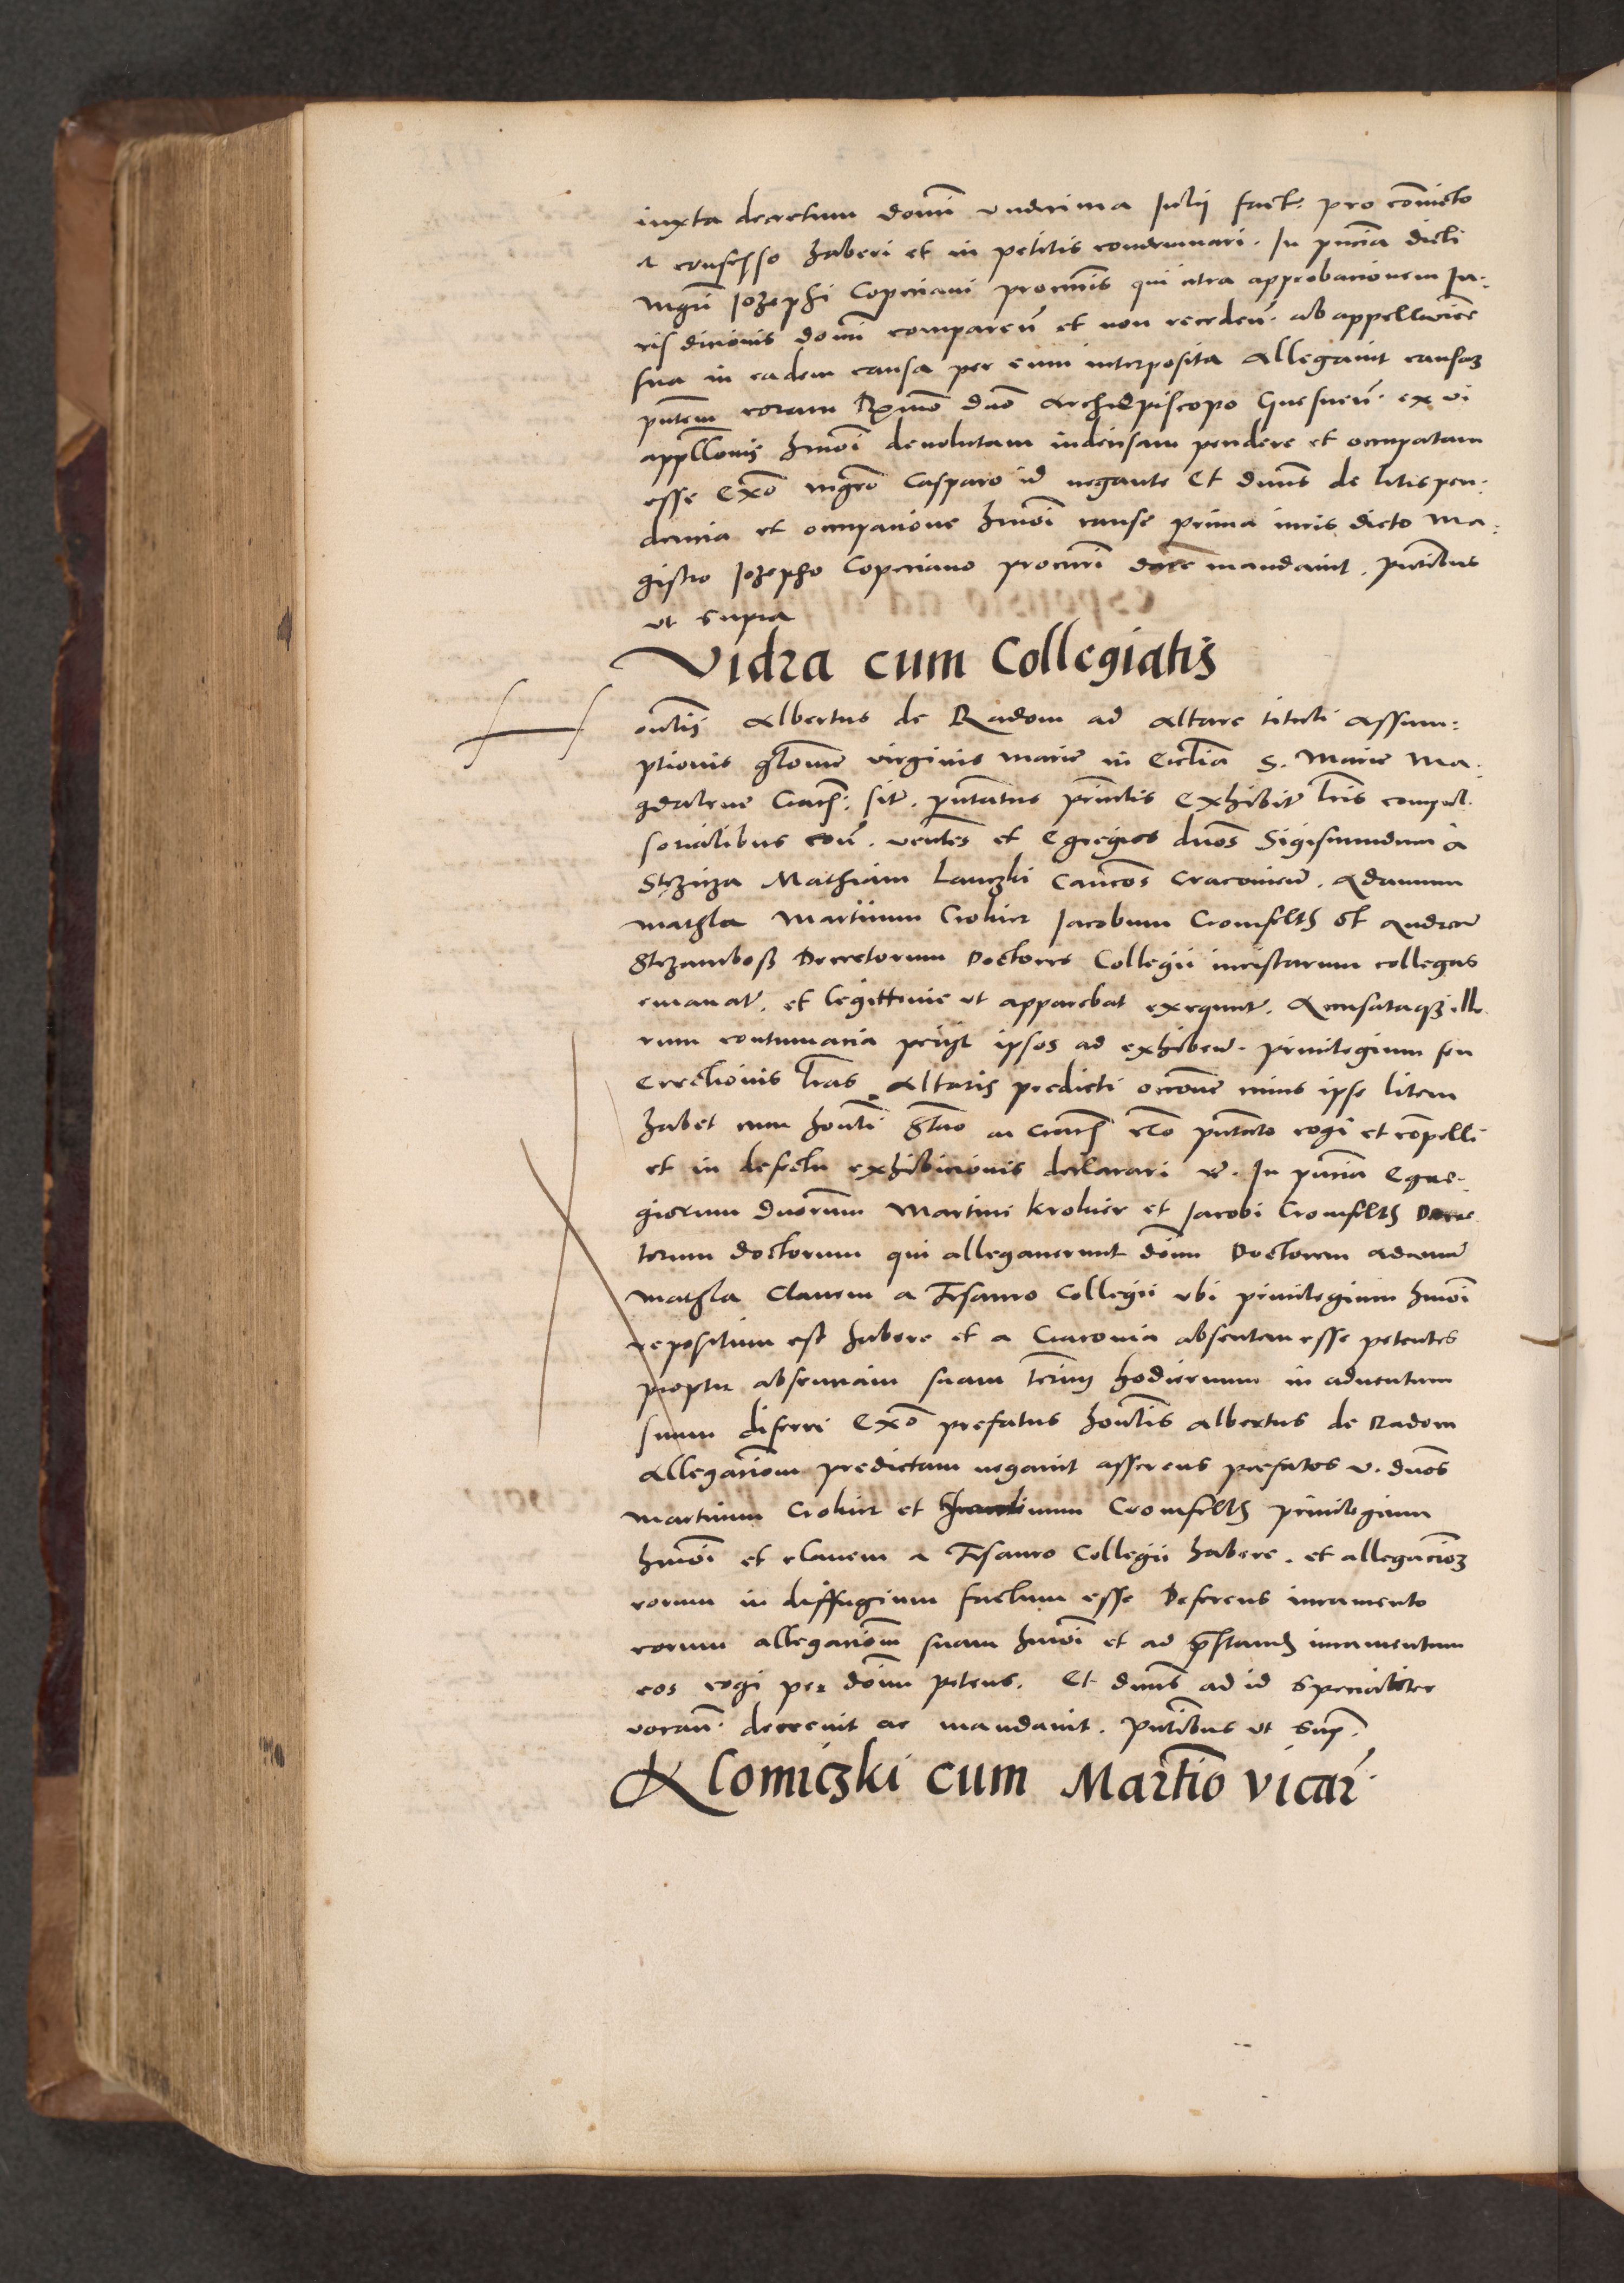 iuxta decretum domi undecima Julij fact. pro conuicto
et confesso haberi et in petitis condemnari. In pncia dicti
mgri Jozephi Copeciani procuris qui citra approbacionem Iu-
risdicionis domi comparen et non receden. ab appellacioe
sua in eadem causa per eum interposita allegauit causaz
pntem coram Rxmo dno archiEpiscopo Gnesnen. ex vi
appllonis hmoi deuolutam indecisam pendere et occupatam
esse Exo mgro Casparo id negante Et dnus de litispen-
dencia et occupacione hmoi cause prima iuris dicto ma-
gistro Jozepho Copeciano procuri docere mandauit. pntibus
ut supra
Vidra cum Collegiatis
Albertus de Radom ad altare tituli assum-
ptionis gloriose virginis marie in Ecclia S. Marie Ma-
gdalene Crach. sit. pntatus pnialis Exhibit lris compul-
sorialibus con. venles et Egregios dnos Sigismundum a
Stezicza Mathiam Lanczki Canicos Cracouien. adamum
mathla Martinum Crokier Jacobum Cromfelth et andream
Strzambosz Decretorum Doctores Collegii iuristarum collegas
emanat. et legittime ut apparebat exequut. accusataqz illo-
rum contumacia peciit ipsos ad exhiben. priuilegium seu
Erectionis lras altaris predicti occone cuius ipse litem
habet cum honli Stano ac Crach pntato cogi et compelli
et in defectu exhibicionis declarari etc. In pncia Egre-
giorum dnorum Martini krokier et Jacobi Cromfelth Decre
torum doctorum qui allegauerunt domi Doctorem adamum
mathla Clauem a Tesauro Collegii ubi priuilegium hmoi
repositum est habere et a Cracouia absentem esse petentes
propter absenciam suam termin hodiernum in aduentum
suum diferri Exo prefatus honlis albertus de Radom
allegacionem predictam negauit asserens prefatos v. dnos
martinum Crokier et Cromfelth priuilegium
hmoi et clauem a Tesauro Collegii habere. et allegacioz
eorum in diffugium factum esse Deferens iuramento
eorum allegacionem suam hmoi et ad prestand iuramentum
eos cogi per domi petens. Et dnus ad id specialiter
vocan. decreuit ac mandauit. pntibus ut sup.
Klomiczki cum Martino vicar